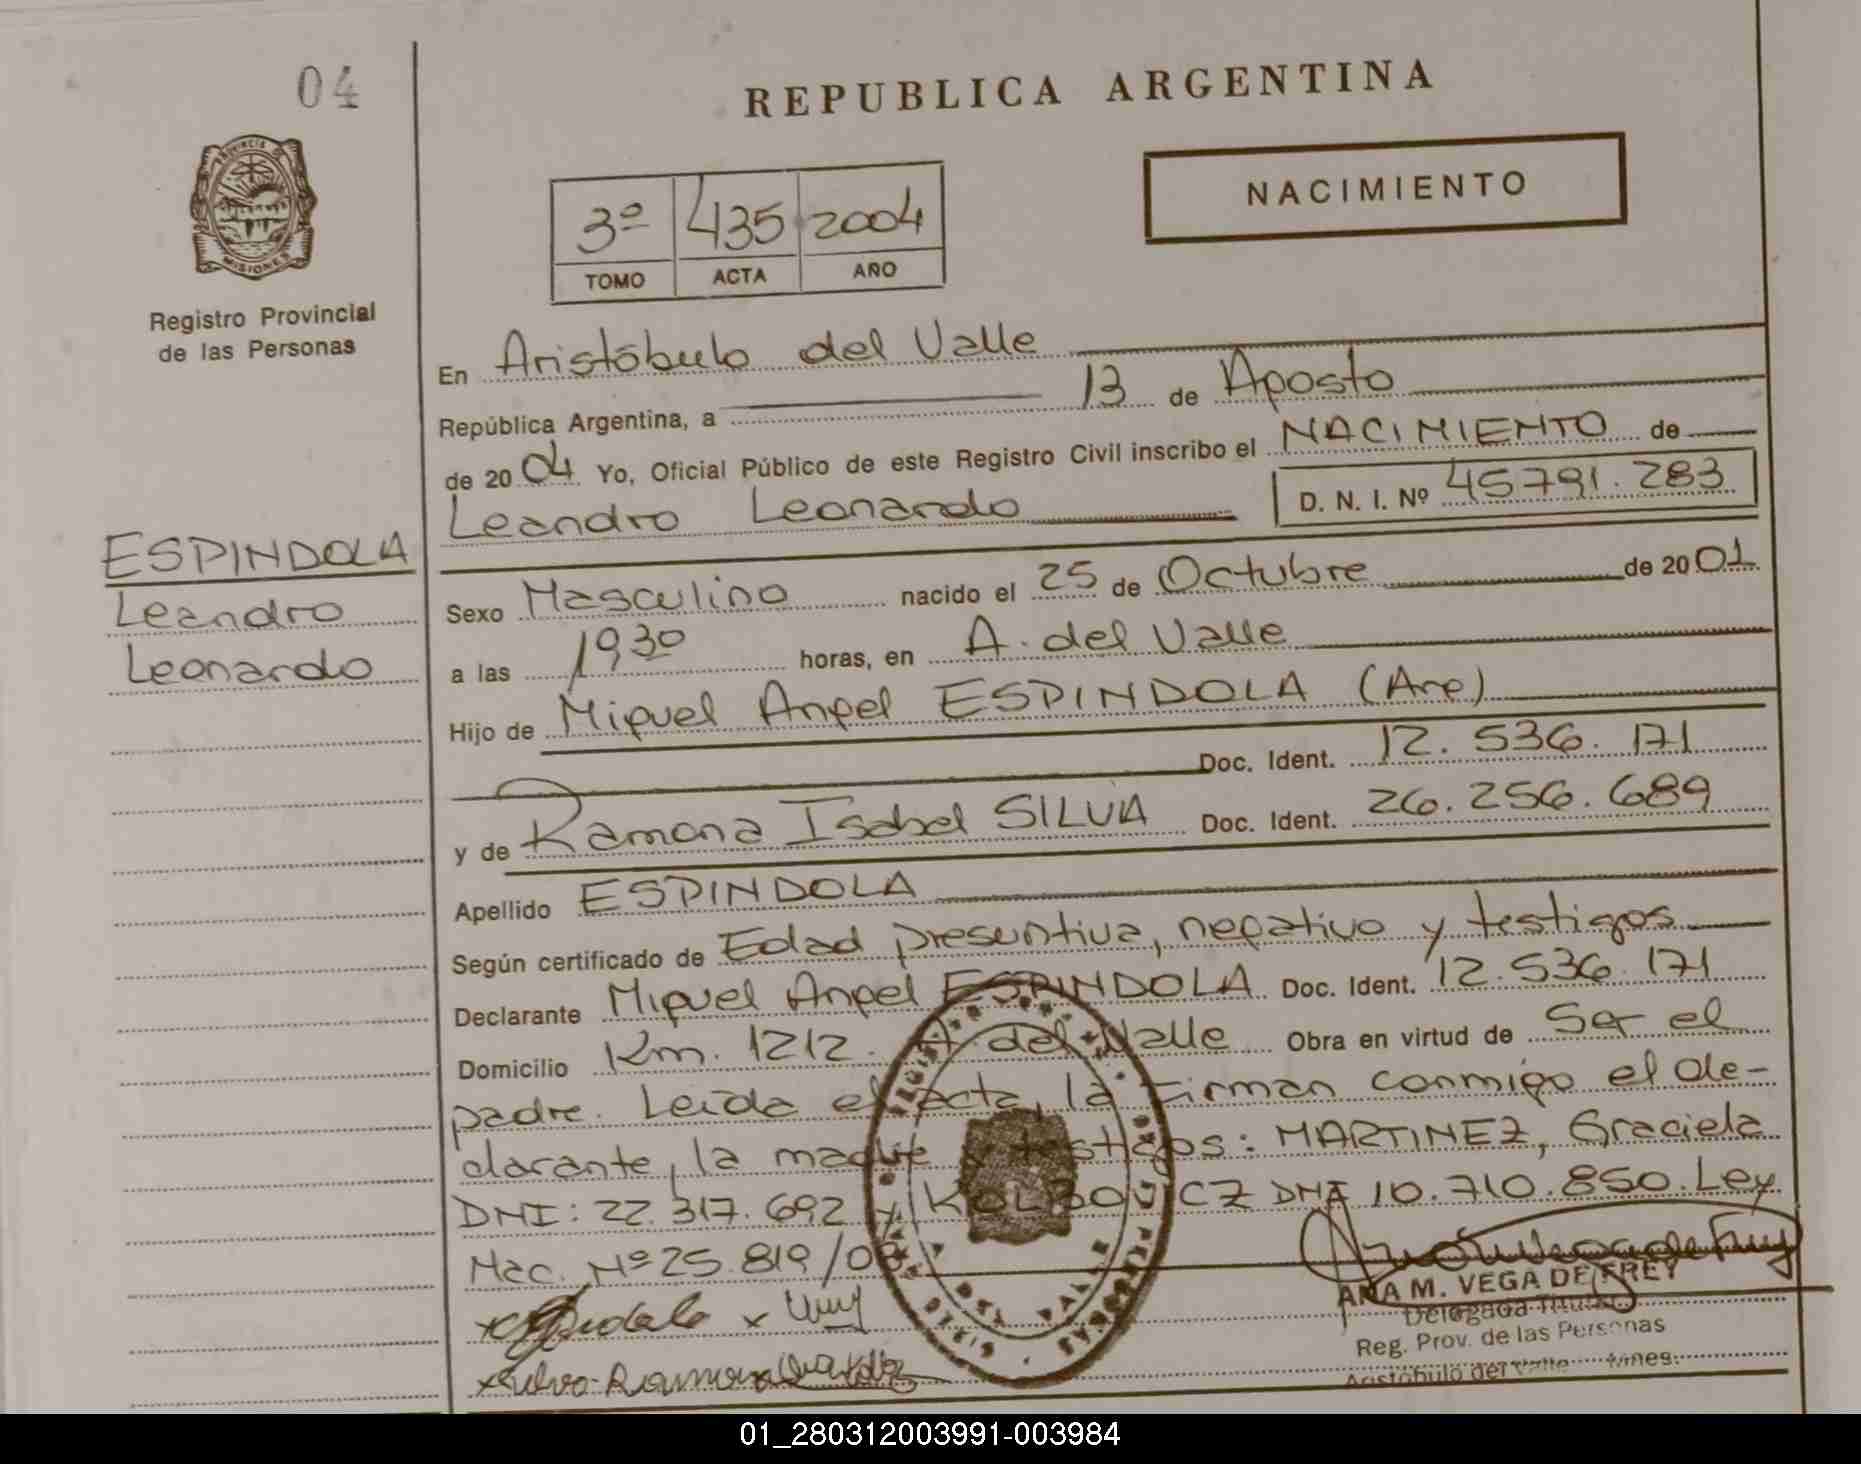 04
REPUBLICA ARGENTINA
NACIMIENTO
3º 435 2004
TOMO ACTA AÑO
PROVINCIA DE
MISIONES
Registro Provincial
de las Personas
En Aristóbulo del Valle
República Argentina, a 13 de Agosto
de 2004 Yo, Oficial Público de este Registro Civil inscribo el NACIMIENTO de
Leandro Leonardo D. N. I. Nº 45791.283
ESPINDOLA
Leandro
Leonardo
Sexo Masculino nacido el 25 de Octubre de 2001
a las 19 30 horas, en A. del Valle
Hijo de Miguel Angel ESPINDOLA (Arg)
Doc. Ident. 12.536.171
y de Ramona Isabel SILVA Doc. Ident. 26.256.689
Apellido ESPINDOLA
Según certificado de Edad presuntiva, negativo y testigos
Declarante Miguel Angel ESPINDOLA Doc. Ident. 12.536.171
Domicilio Km. 1212. A del Valle Obra en virtud de Ser el
padre. Leida el acta, la firman conmigo el de-
clarante, la madre y testigos: MARTINEZ, Graciela
DNI: 22.317.692 y KOLBOVICZ DNI 10.710.850. Ley
Nac. Nº 25.819/03
ANA M. VEGA DE FREY
Delegada Titular
Reg. Prov. de las Personas
Aristóbulo del Valle
01_280312003991-003984